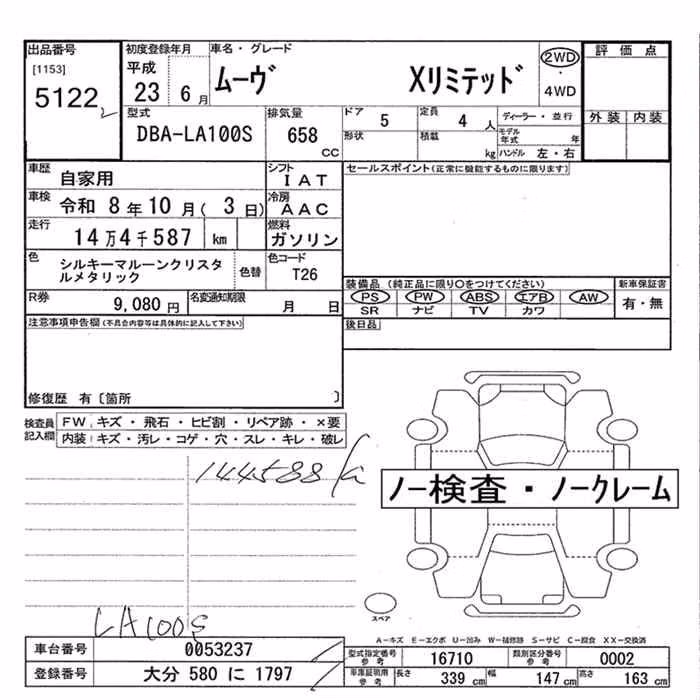 出品番号
[1153]
5122
初度登録年月
平成
23 6月
車名・グレード
ムーヴ Xリミテッド
2WD
・
4WD
評価点
外装 内装
型式
DBA-LA100S
排気量
658
CC
ドア 5
定員 4人
ディーラー・並行
形状
積載 kg
モデル年式 年
ハンドル 左・右
車歴 自家用
シフト IAT
セールスポイント(正常に機能するものに限ります)
車検 令和 8年10月(3日)
冷房 AAC
走行 14万4千587 km
燃料 ガソリン
色 シルキーマルーンクリスタルメタリック
色替
色コード T26
装備品(純正品に限り○をつけてください)
新車保証書
PS PW ABS エアB AW
有・無
SR ナビ TV カワ
R券 9,080円
名変通知期限 月 日
後日品
注意事項申告欄(不具合内容等は具体的に記入して下さい)
修復歴 有〔箇所 〕
検査員記入欄
FW キズ・飛石・ヒビ割・リペア跡・×要
内装 キズ・汚レ・コゲ・穴・スレ・キレ・破レ
144588
ノー検査・ノークレーム
スペア
A-キズ E-エクボ U-凹み W-補修跡 S-サビ C-腐食 XX-交換済
LA100S
車台番号 0053237
登録番号 大分 580 に 1797
型式指定番号参考 16710
類別区分番号参考 0002
車庫証明用参考 長さ 339 cm 幅 147 cm 高さ 163 cm